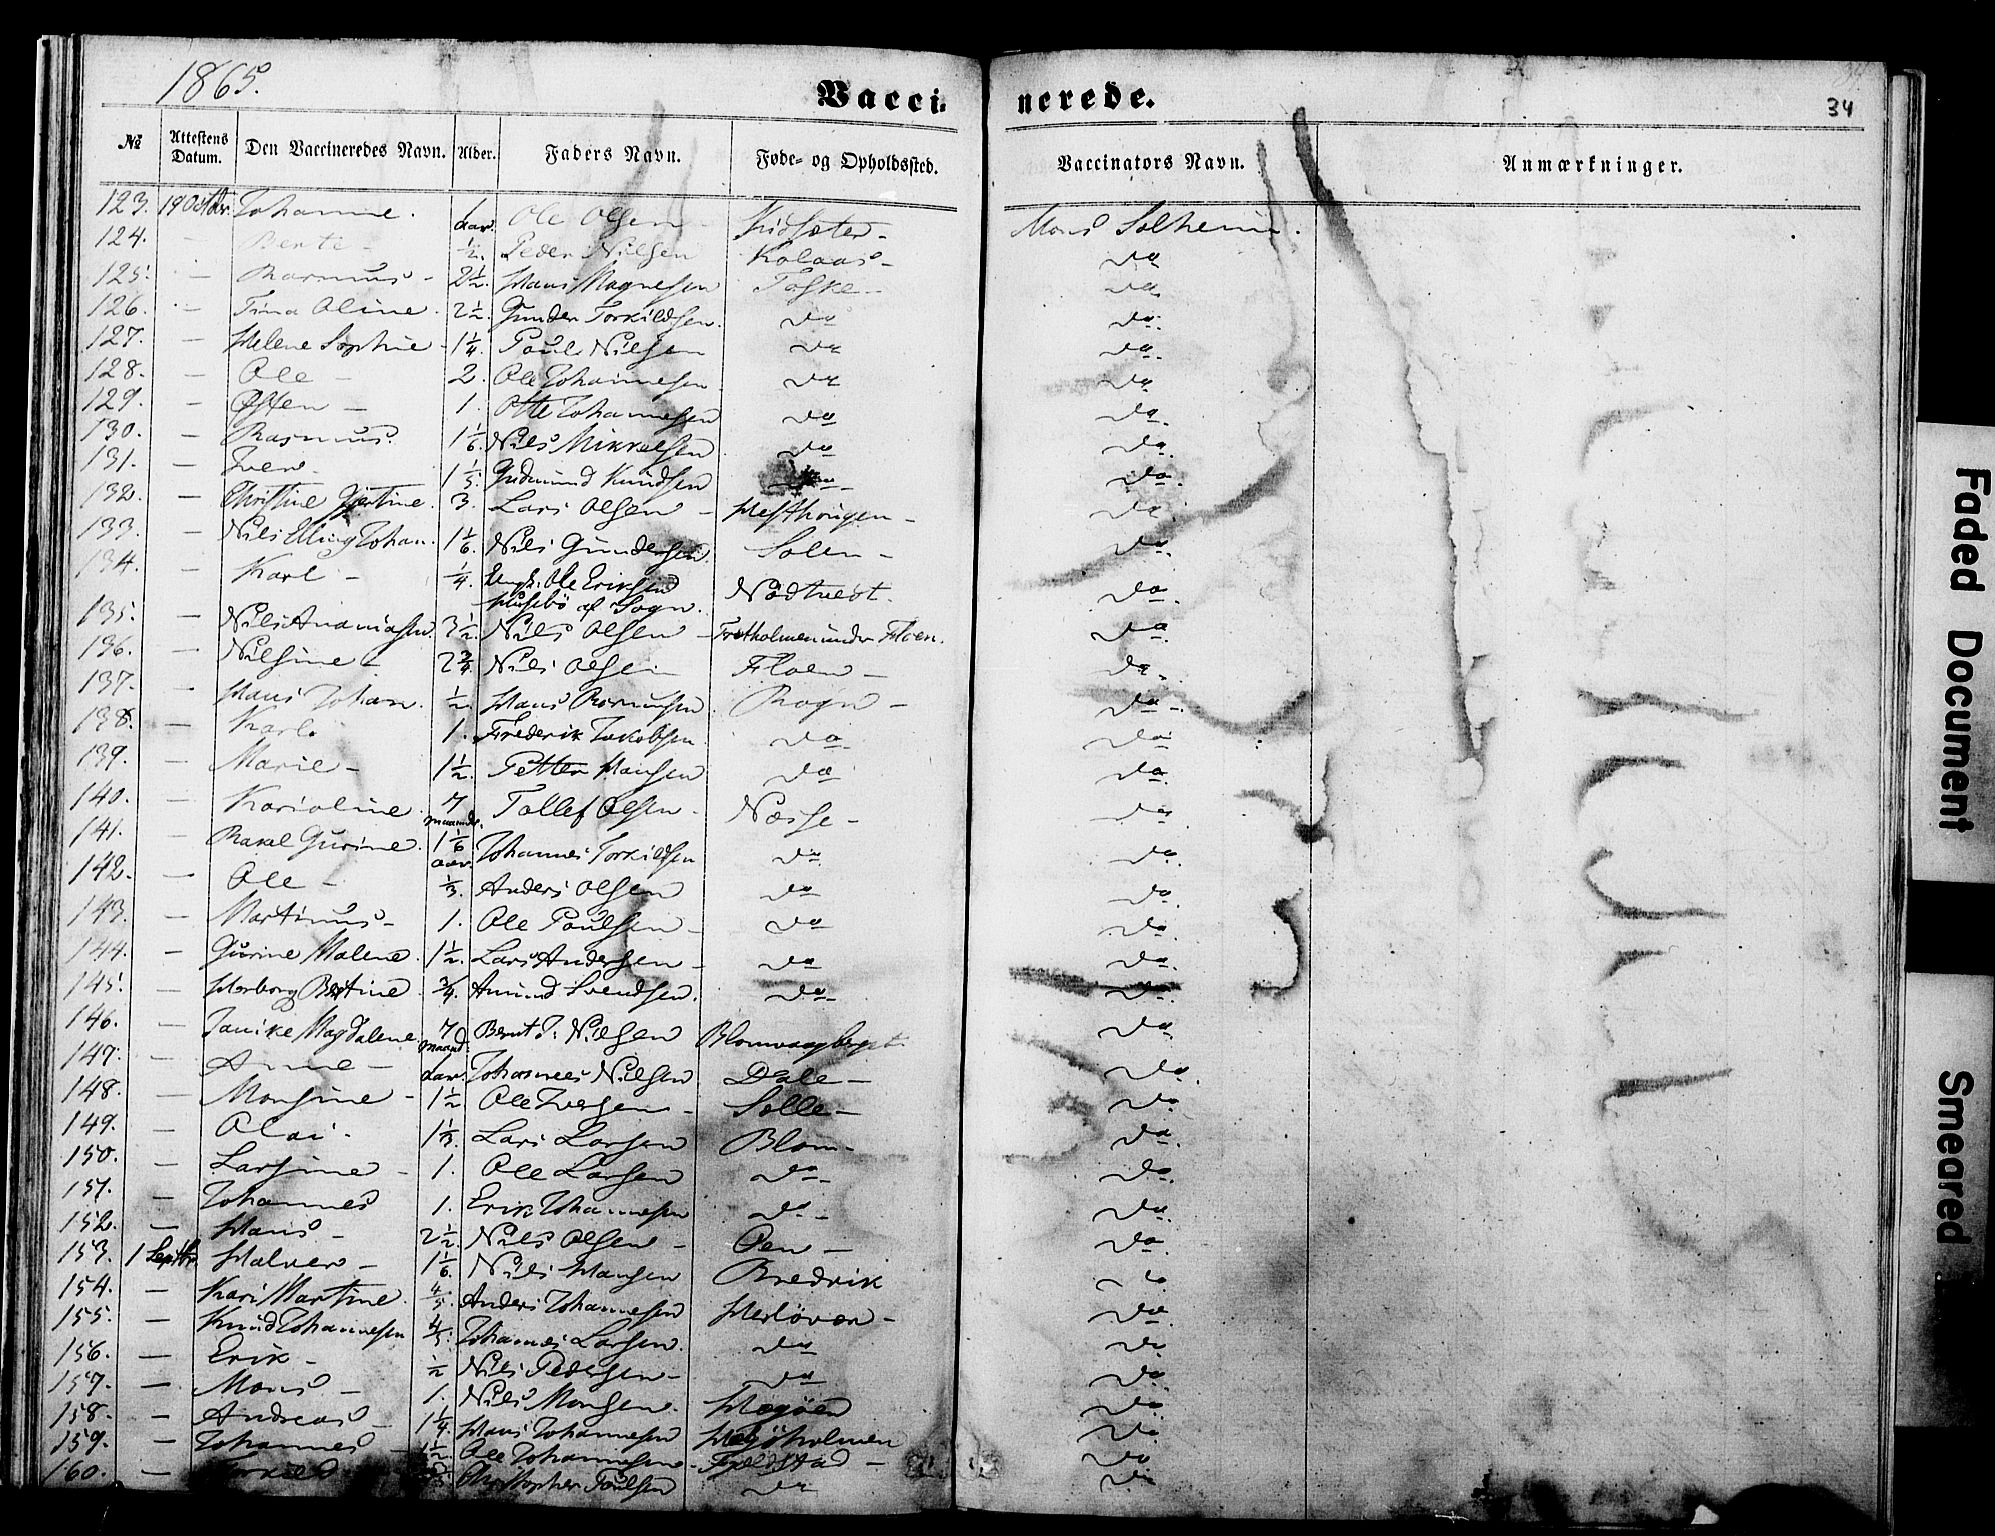 1865.
Vaccinerede.
34
№ Attestens Datum. Den Vaccineredes Navn. Alder. Faders Navn. Føde- og Opholdssted. Vaccinators Navn. Anmærkninger.
123. 19 Octbr. Johanne. 1 Aar. Ole Olsen Kidsæter - Mons Solheim.
124. - Berte - ½. Peder Nielsen Kolaas - do
125. - Rasmus - 2½. Hans Magnesen Toske - do
126. - Tina Oline. 2½. Gunder Torkildsen. do do.
127. - Helene Sophie - 1¼. Poul Nilsen do do.
128. - Ole - 2. Ole Johannesen do do.
129. - Østen - 1. Otte Johannesen do do.
130. - Rasmus. 1 1/6. Nils Mikkelsen do do.
131. - Iver. 1 1/5. Gudmund Knudsen do do.
132. - Christine Gjertine. 3. Lars Olsen - do.
133. - Nils Elling Johan. 1 1/6. Nils Gundersen. Solem - do.
134. - Karl - ¼. Ungk. Ole Eriksen Nødtvedt. do.
Husebø af Sogn.
135. - Nils Ananiasen. 3½. Nils Olsen - Tretholmen under Floen. do.
136. - Nilsine - 2¾. Nils Olsen Floen - do.
137. - Hans Johan. ½. Hans Rasmusen Rogn - do -
138. - Karl. 1. Frederik Jakobsen. do do
139. - Marie - 1½. Petter Hansen do do
140. - Karioline 7 maaneder. Tollef Olsen. Nesse - do
141. - Rakel Gurine. 1 1/6 Aar. Johannes Torkildsen do do.
142. - Ole - ⅓. Anders Olsen do do
143. - Martinus - 1. Ole Poulsen - do do.
144. - Gurine Malene. 1½. Lars Andersen - do do.
145. - Herborg Bertine ¾. Amund Svendsen. do do.
146. - Janike Magdalene. 7 maand. Bernt J. Nilsen Blomvaag do
147. - Anne - Aar. Johannes Nilsen Dale - do.
148. - Monsine - 1½ Ole Iversen - Solle - do
149. - Olai - 1⅓. Lars Larsen Blom - do.
150. - Larsine - 1. Ole Larsen do - do.
151. - Johannes 1. Erik Johannesen do - do.
152. - Hans - 2½. Nils Olsen - Oen - do.
153. 1 Septbr. Halver - 1 1/6. Nils Hansen Bredvik do
154. - Kari Martine. 4/5. Anders Johannesen Herløvær - do
155. - Knud Johannesen 4/5. Johannes Larsen. do do
156. - Erik - ½ Nils Pedersen - do do.
157. - Mons - 1. Nils Monsen. Hægøen do
158. - Andreas - 1¼. Hans Johannesen Hægøholmen do.
159. - Johannes - 1½. Ole Johannesen - Fjeldstad - do
160. - Torkild Christopher Poulsen do do
Faded Document
Smeared